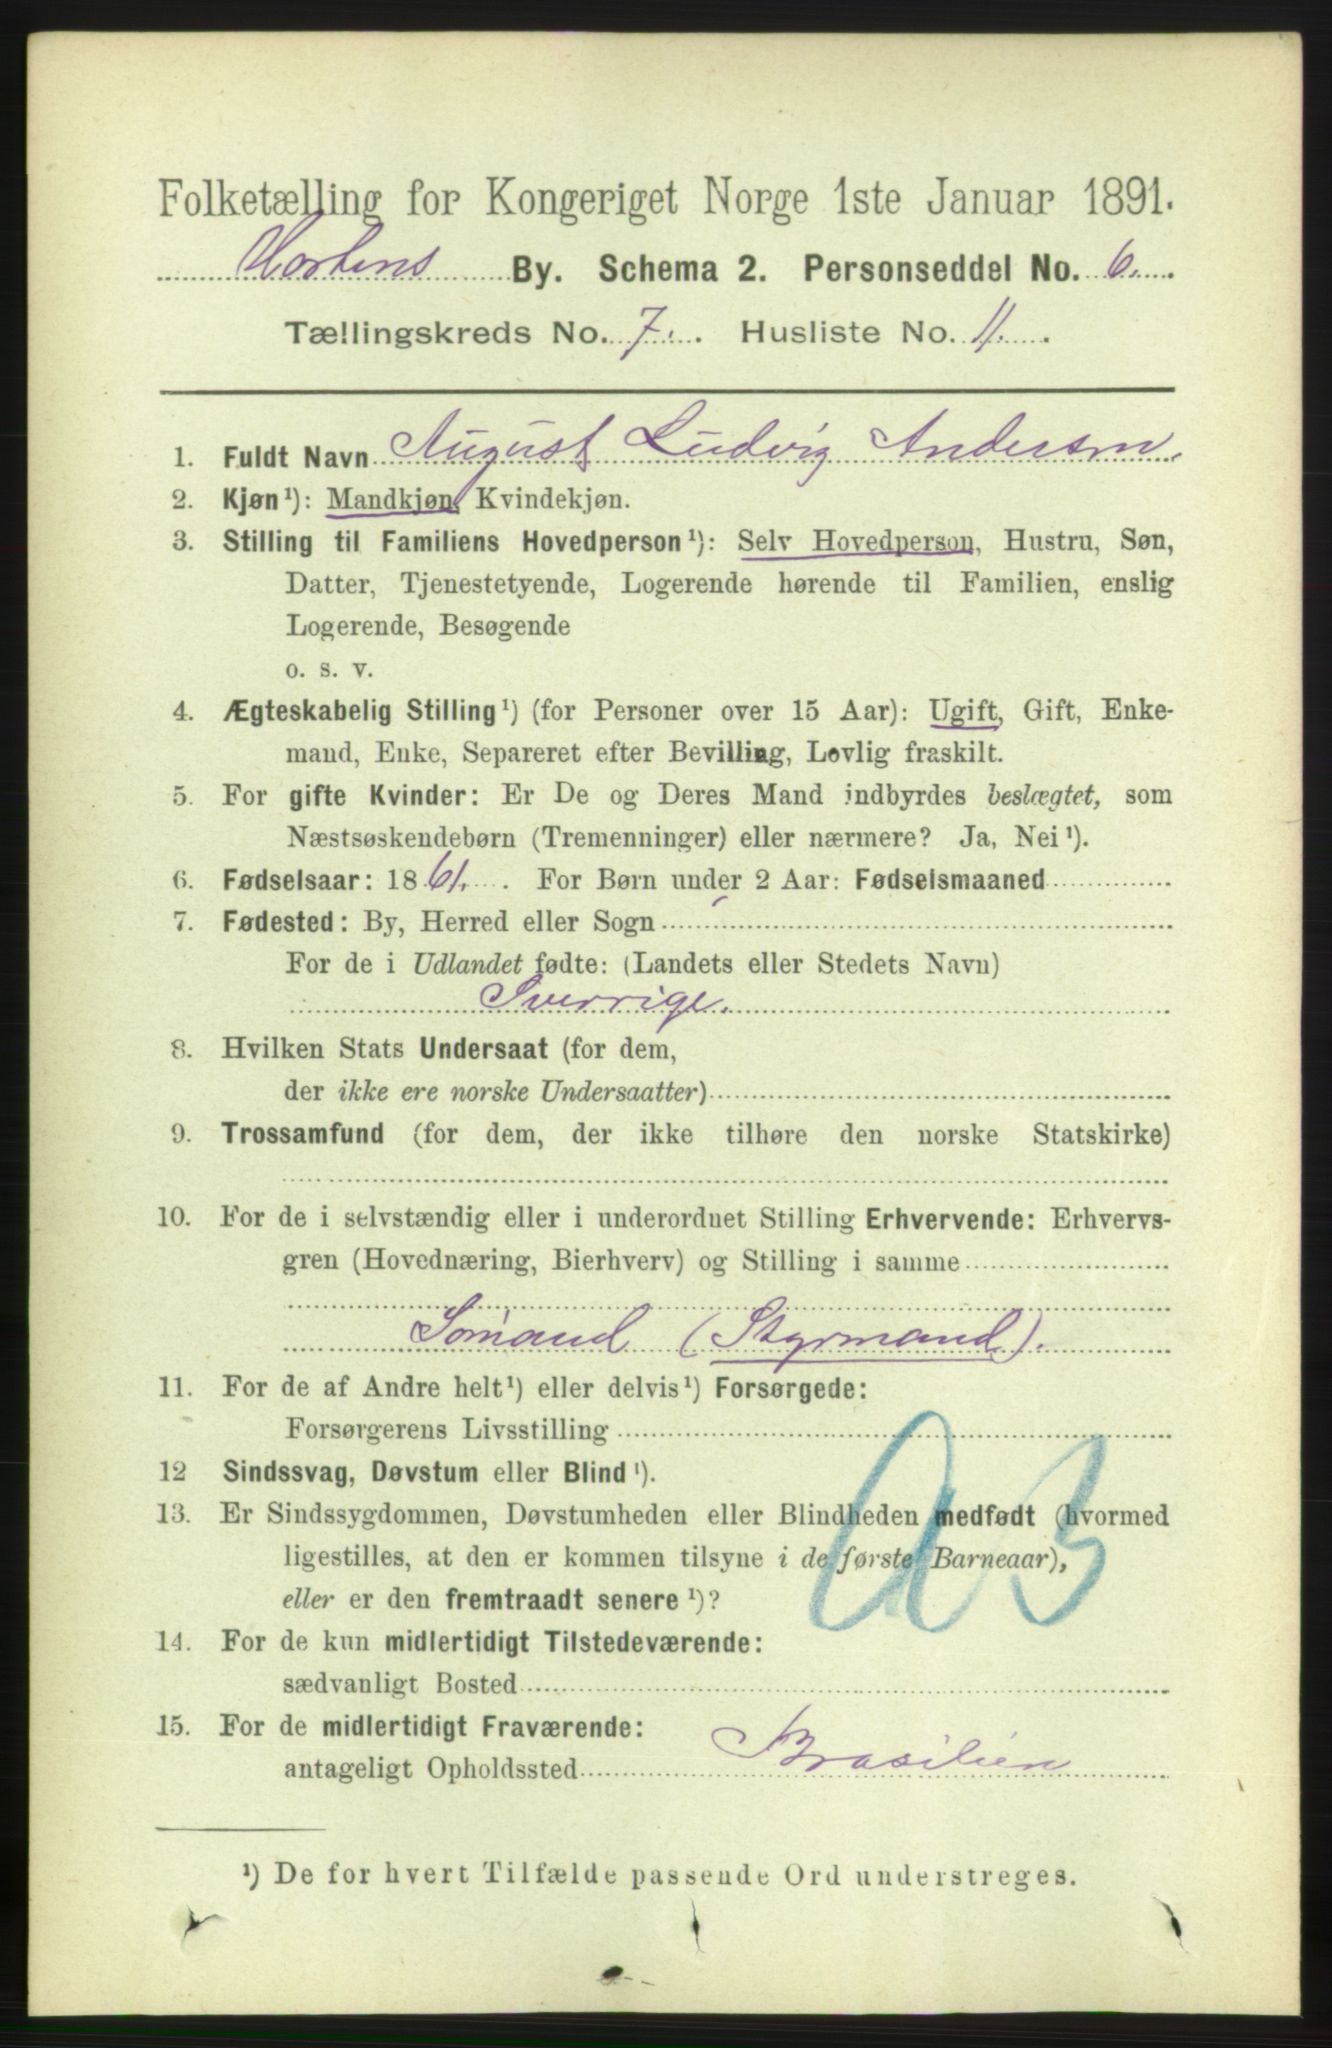 Folketælling for Kongeriget Norge 1ste Januar 1891.
Hortens By. Schema 2. Personseddel No. 6.
Tællingskreds No. 7. Husliste No. 11.
1. Fuldt Navn August Ludvig Andersen.
2. Kjøn¹): Mandkjøn, Kvindekjøn.
3. Stilling til Familiens Hovedperson¹): Selv Hovedperson, Hustru, Søn,
Datter, Tjenestetyende, Logerende hørende til Familien, enslig
Logerende, Besøgende
o. s. v.
4. Ægteskabelig Stilling¹) (for Personer over 15 Aar): Ugift, Gift, Enke-
mand, Enke, Separeret efter Bevilling, Lovlig fraskilt.
5. For gifte Kvinder: Er De og Deres Mand indbyrdes beslægtet, som
Næstsøskendebørn (Tremenninger) eller nærmere? Ja, Nei¹).
6. Fødselsaar: 1861. For Børn under 2 Aar: Fødselsmaaned
7. Fødested: By, Herred eller Sogn
For de i Udlandet fødte: (Landets eller Stedets Navn)
Sverrige.
8. Hvilken Stats Undersaat (for dem,
der ikke ere norske Undersaatter)
9. Trossamfund (for dem, der ikke tilhøre den norske Statskirke)
10. For de i selvstændig eller i underordnet Stilling Erhvervende: Erhvervs-
gren (Hovednæring, Bierhverv) og Stilling i samme
Sømand (Styrmand).
11. For de af Andre helt¹) eller delvis¹) Forsørgede:
Forsørgerens Livsstilling
12 Sindssvag, Døvstum eller Blind¹).
13. Er Sindssygdommen, Døvstumheden eller Blindheden medfødt (hvormed
ligestilles, at den er kommen tilsyne i de første Barneaar),
eller er den fremtraadt senere¹)?
14. For de kun midlertidigt Tilstedeværende:
sædvanligt Bosted
15. For de midlertidigt Fraværende:
antageligt Opholdssted Brasilien
¹) De for hvert Tilfælde passende Ord understreges.